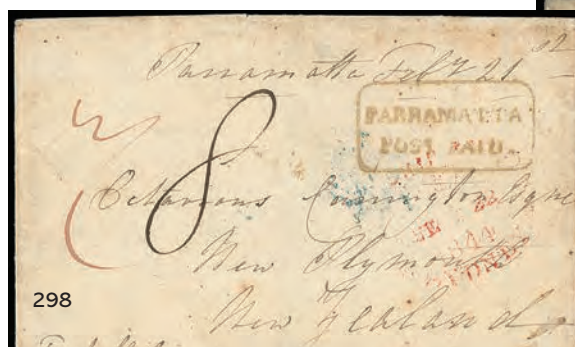 Parramatta Feb 21st
8
PARRAMATTA
POST PAID.
Octavius Carrington Esqre
New Plymouth
New Zealand
298